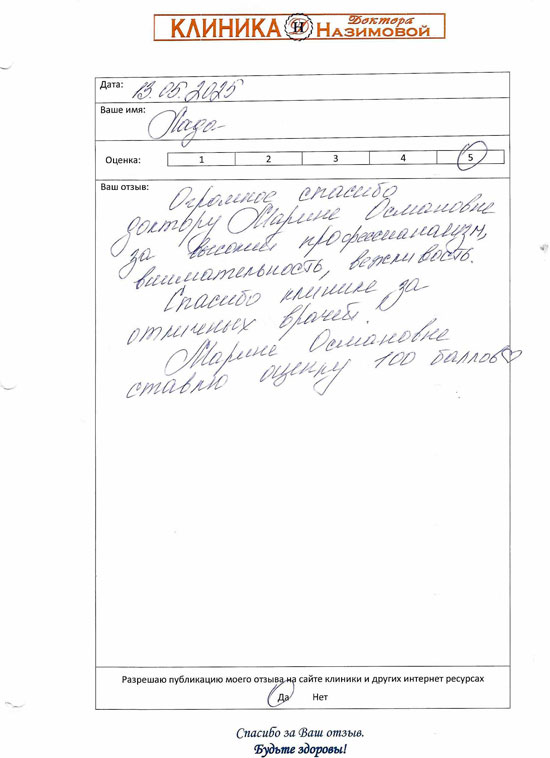 КЛИНИКА Доктора Назимовой
Дата: 13.05.2025
Ваше имя: Лада
Оценка: 1 2 3 4 5
Ваш отзыв:
Огромное спасибо
доктору Марине Османовне
за высокий профессионализм,
внимательность, вежливость.
Спасибо клинике за
отличных врачей.
Марине Османовне
ставлю оценку 100 баллов♡
Разрешаю публикацию моего отзыва на сайте клиники и других интернет ресурсах
Да Нет
Спасибо за Ваш отзыв.
Будьте здоровы!